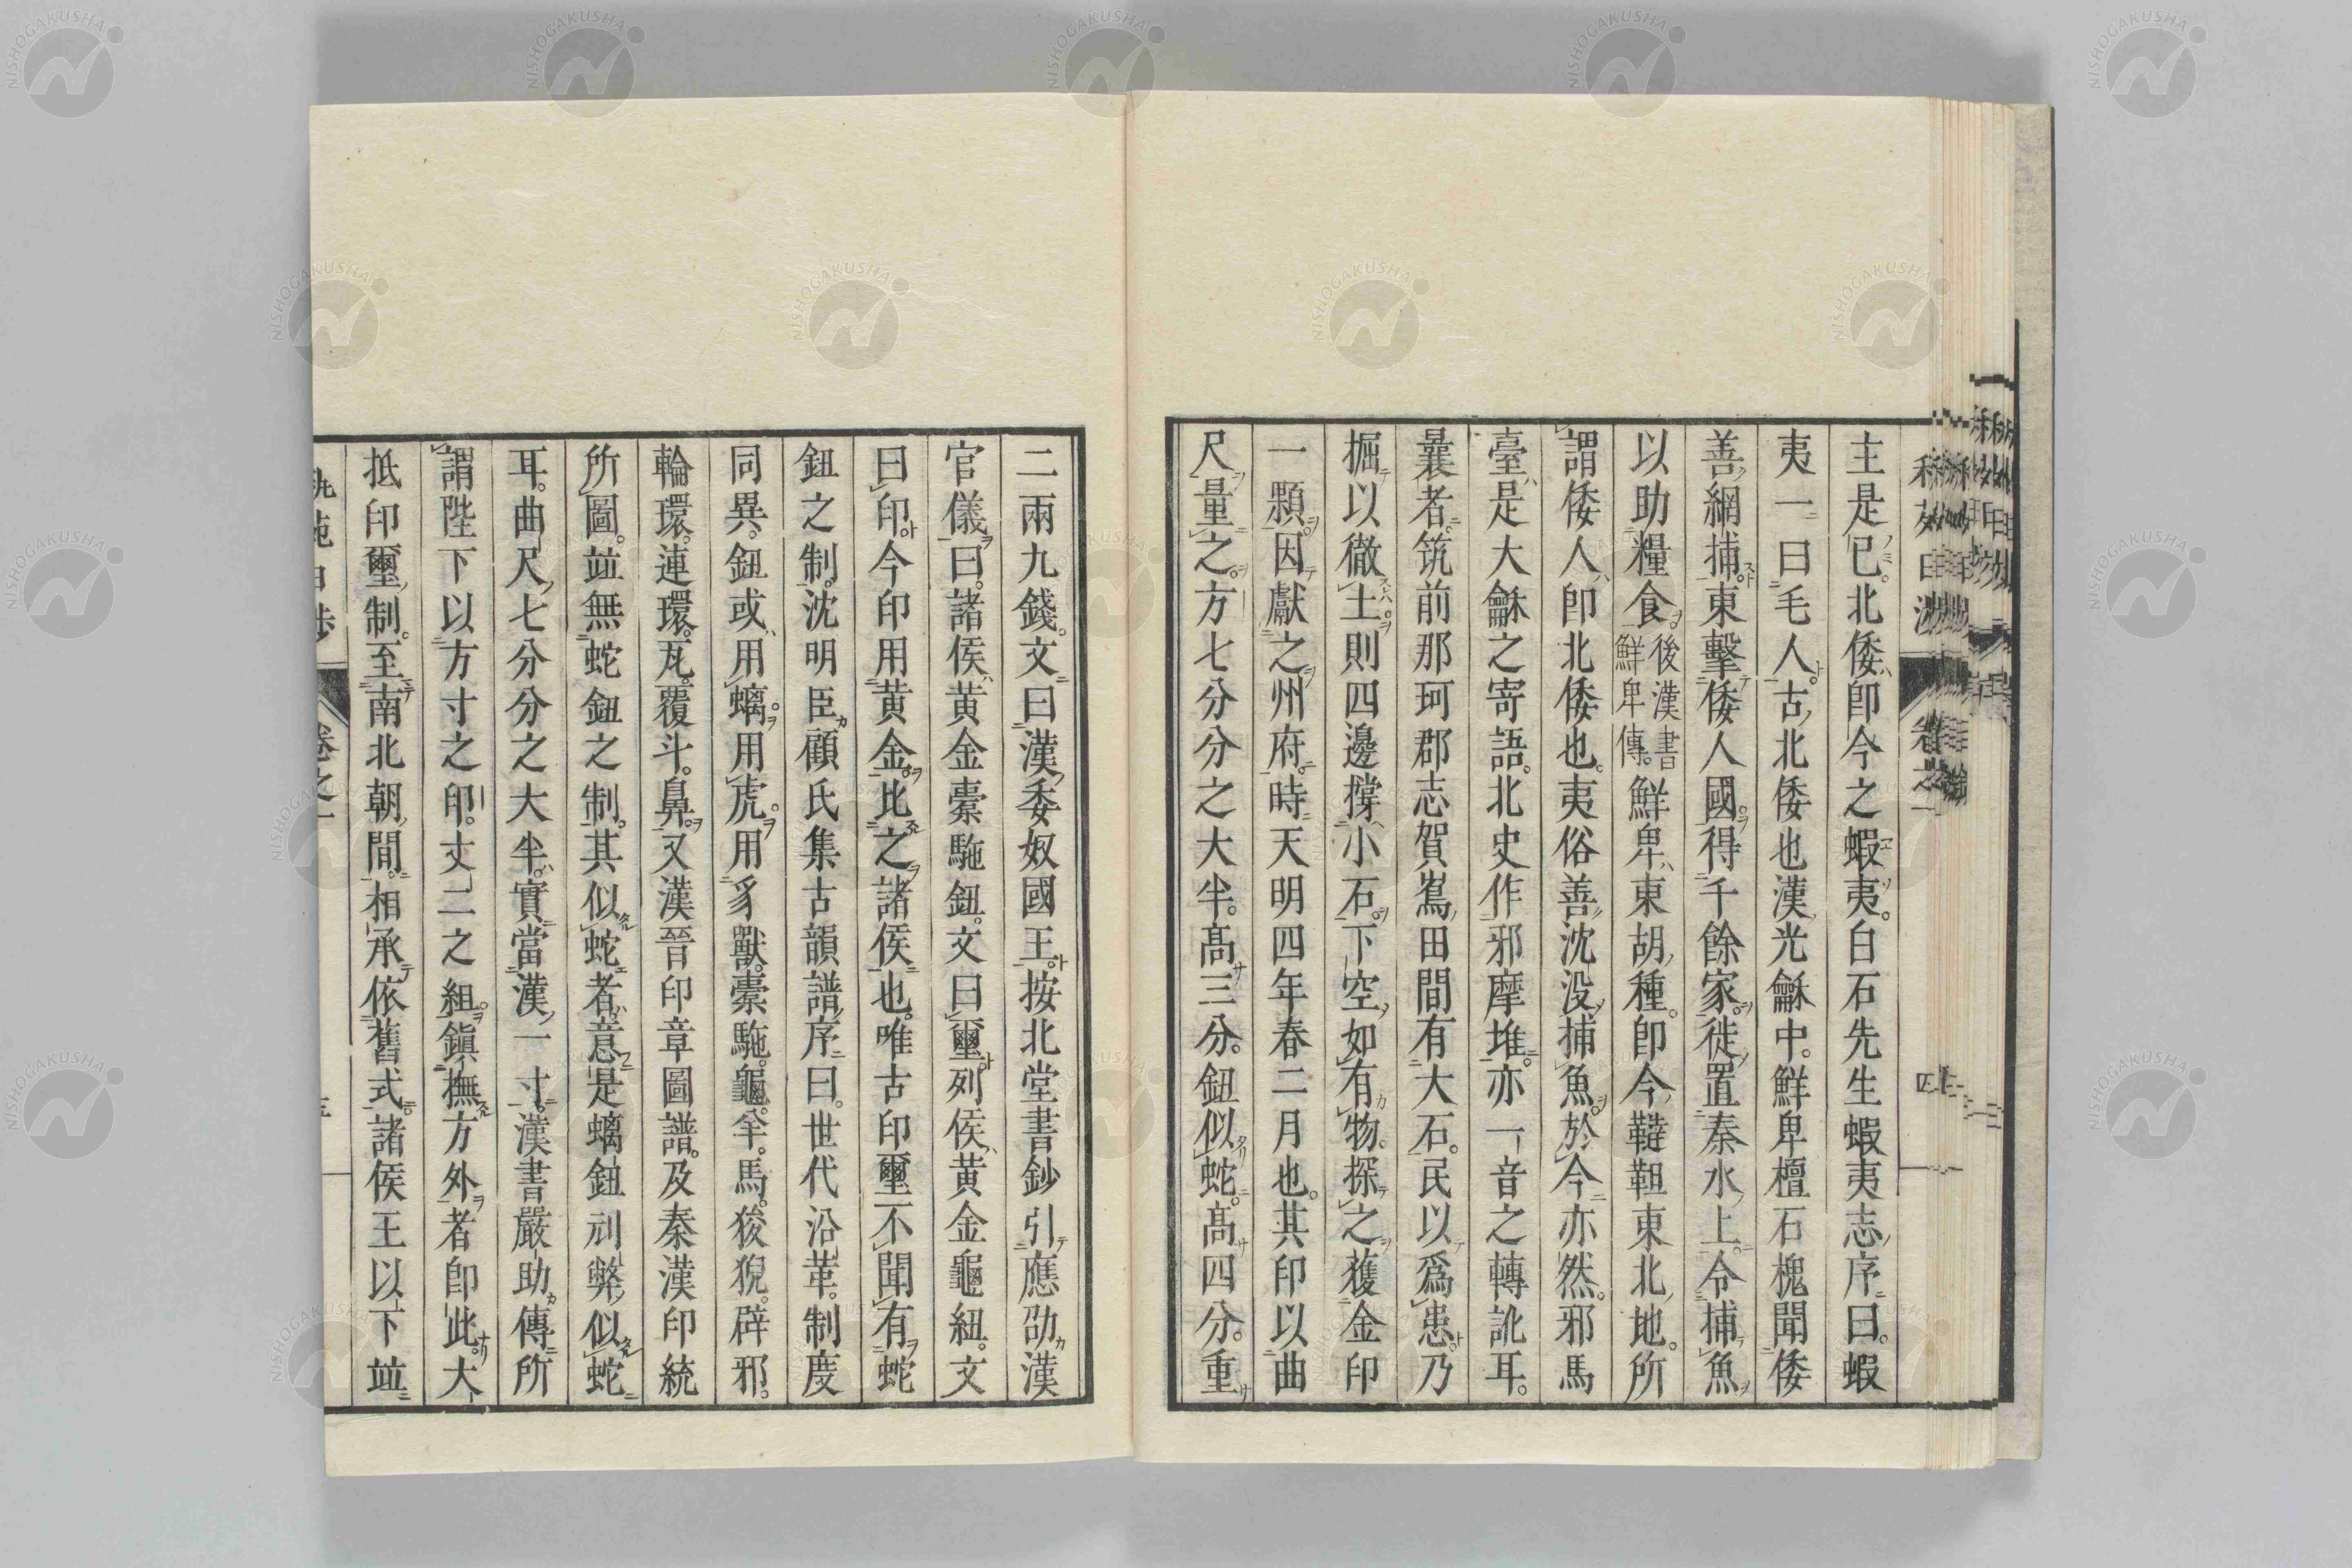 主是已。北倭卽今之蝦夷。白石先生蝦夷志序曰。蝦
夷一曰毛人。古北倭也漢光龢中。鮮卑檀石槐聞倭
善網捕。東擊倭人國。得千餘家。徙置秦水上令捕魚
以助糧食。後漢書鮮卑傳。鮮卑東胡種。卽今韃靼東北地。所
謂倭人卽北倭也。夷俗善沈没捕魚。於今亦然。邪馬
臺是大龢之寄語。北史作邪摩堆。亦一音之轉訛耳。
曩者。筑前那珂郡志賀嶌田間有大石。民以爲患。乃
掘以徹土。則四邊撐小石。下空如有物。探之獲金印
一顆。因獻之州府。時天明四年春二月也。其印以曲
尺量之。方七分分之大半。高三分。鈕似蛇。高四分。重
二兩九錢。文曰漢委奴國王。按北堂書鈔引應劭漢
官儀曰。諸侯黄金橐駞鈕。文曰璽。列侯黄金龜紐。文
曰印。今印用黄金。比之諸侯也。唯古印璽不聞有蛇
鈕之制。沈明臣顧氏集古韻譜序曰。世代沿革。制度
同異。鈕或用螭。用虎。用豸獸。橐駞。龜。羊。馬。狻猊。辟邪。
輪環。連環。瓦。覆斗。鼻。又漢晉印章圖譜。及秦漢印統
所圖。竝無蛇鈕之制。其似蛇者。意是螭鈕刓弊。似蛇
耳。曲尺七分分之大半。實當漢一寸。漢書嚴助傳所
謂陛下以方寸之印。丈二之組。鎭撫方外者卽此。大
抵印璽制。至南北朝間。相承依舊式。諸侯王以下竝